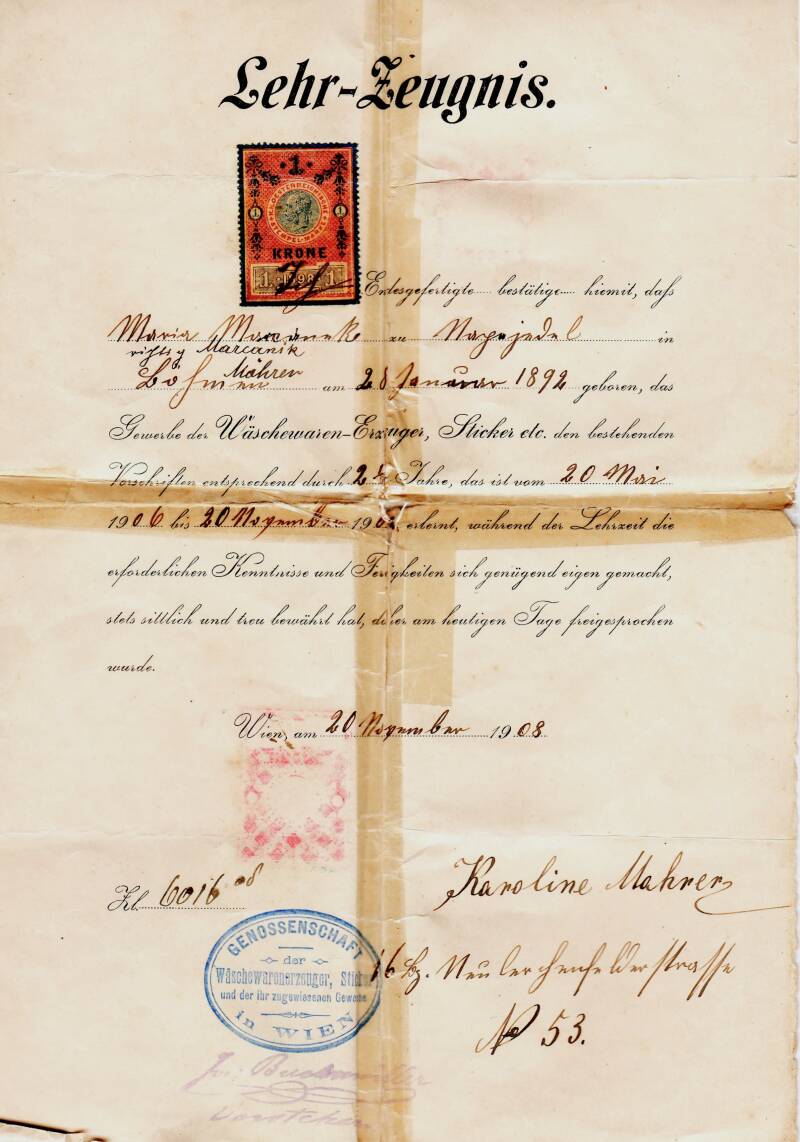 Lehr-Zeugnis.
1
K.K. OESTERREICHISCHE STEMPEL-MARKE
1 1
KRONE
1 1898 1
Endesgefertigte bestätige hiemit, daſs
Maria Marcanek zu Napajedel in
richtig Marcanik
Mähren
Böhmen am 28 Januar 1892 geboren, das
Gewerbe der Wäschewaren-Erzeuger, Sticker etc. den bestehenden
Vorschriften entsprechend durch 2½ Jahre, das ist vom 20 Mai
1906 bis 20 November 1908 erlernt, während der Lehrzeit die
erforderlichen Kenntnisse und Fertigkeiten sich genügend eigen gemacht,
stets sittlich und treu bewährt hat, daher am heutigen Tage freigesprochen
wurde.
Wien, am 20 November 1908
Zl. 6016 08
Karoline Mahrer
GENOSSENSCHAFT
der
Wäschewarenerzeuger, Sticker
und der ihr zugewiesenen Gewerbe
in WIEN
16 Bz. Neulerchenfelderstrasse
№ 53.